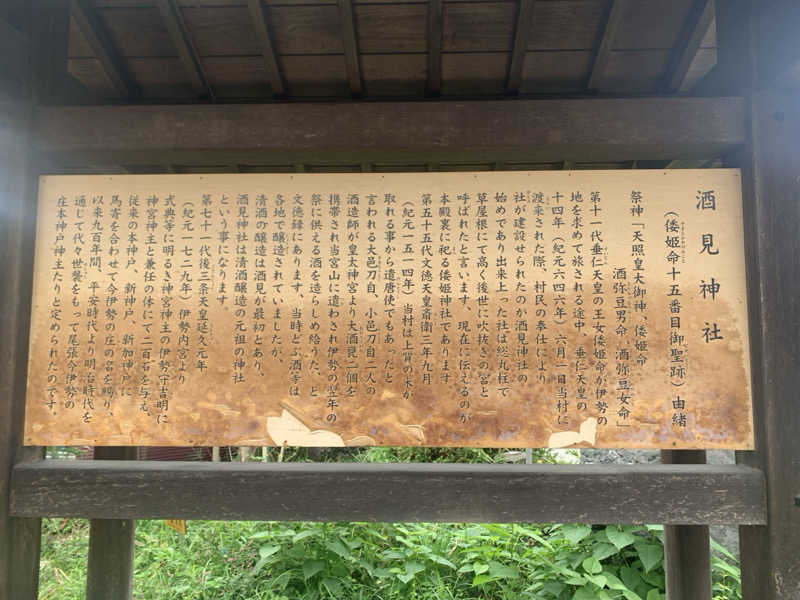 酒見神社
(倭姫命十五番目御聖跡)由緒
祭神「天照皇大御神、倭姫命
酒弥豆男命、酒弥豆女命」
第十一代垂仁天皇の王女倭姫命が伊勢の
地を求めて旅される途中、垂仁天皇の
十四年(紀元六四六年)六月一日当村に
渡来された際、村民の奉仕により
社が建設せられたのが酒見神社の
始めであり出来上った社は総丸柱で
草屋根にて高く後世に吹抜きの宮と
呼ばれたと言います、現在に伝えるのが
本殿裏に祀る倭姫神社であります
第五十五代文徳天皇斎衡三年九月
(紀元一五一四年)当村は上質の米が
取れる事から遣唐使でもあったと
言われる大邑刀自、小邑刀自二人の
酒造師が皇太神宮より大酒甕二個を
携帯され当宮山に遣わされ伊勢の翌年の
祭に供える酒を造らしめ給うた、と
文徳録にあります、当時どぶ酒等は
各地で醸造されていましたが、
清酒の醸造は酒見が最初とあり、
酒見神社は清酒醸造の元祖の神社
という事になります。
第七十一代後三条天皇延久元年
(紀元一七二九年)伊勢内宮より
式典等に明るき神宮神主の伊勢守吉明に
神宮神主と兼任の体にて二百石を与え、
従来の本神戸、新神戸、新加神戸に
馬寄を合わせて今伊勢の庄の宮を賜り、
以来九百年間、平安時代より明治時代を
通じて代々世襲をもって尾張今伊勢の
庄本神戸神主たりと定められたのです。